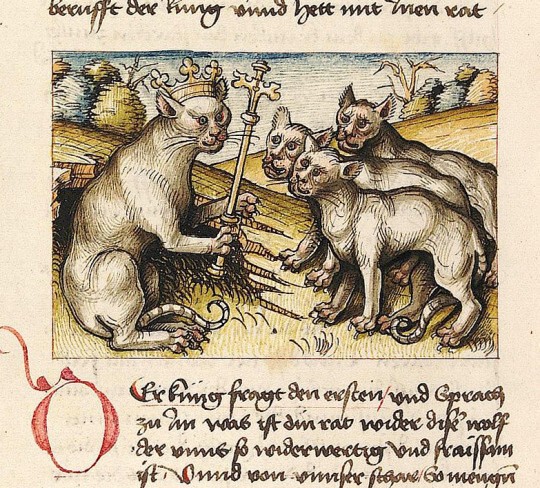 berufft der küng vnnd hett mit Jnen rat
DEr küng fragt den ersten / vnd Sprach
zu Jm was ist din rat wider dise wolf
der vnns so widerwertig vnd fraissam
ist / Vnnd von vnnser schare / So mengen